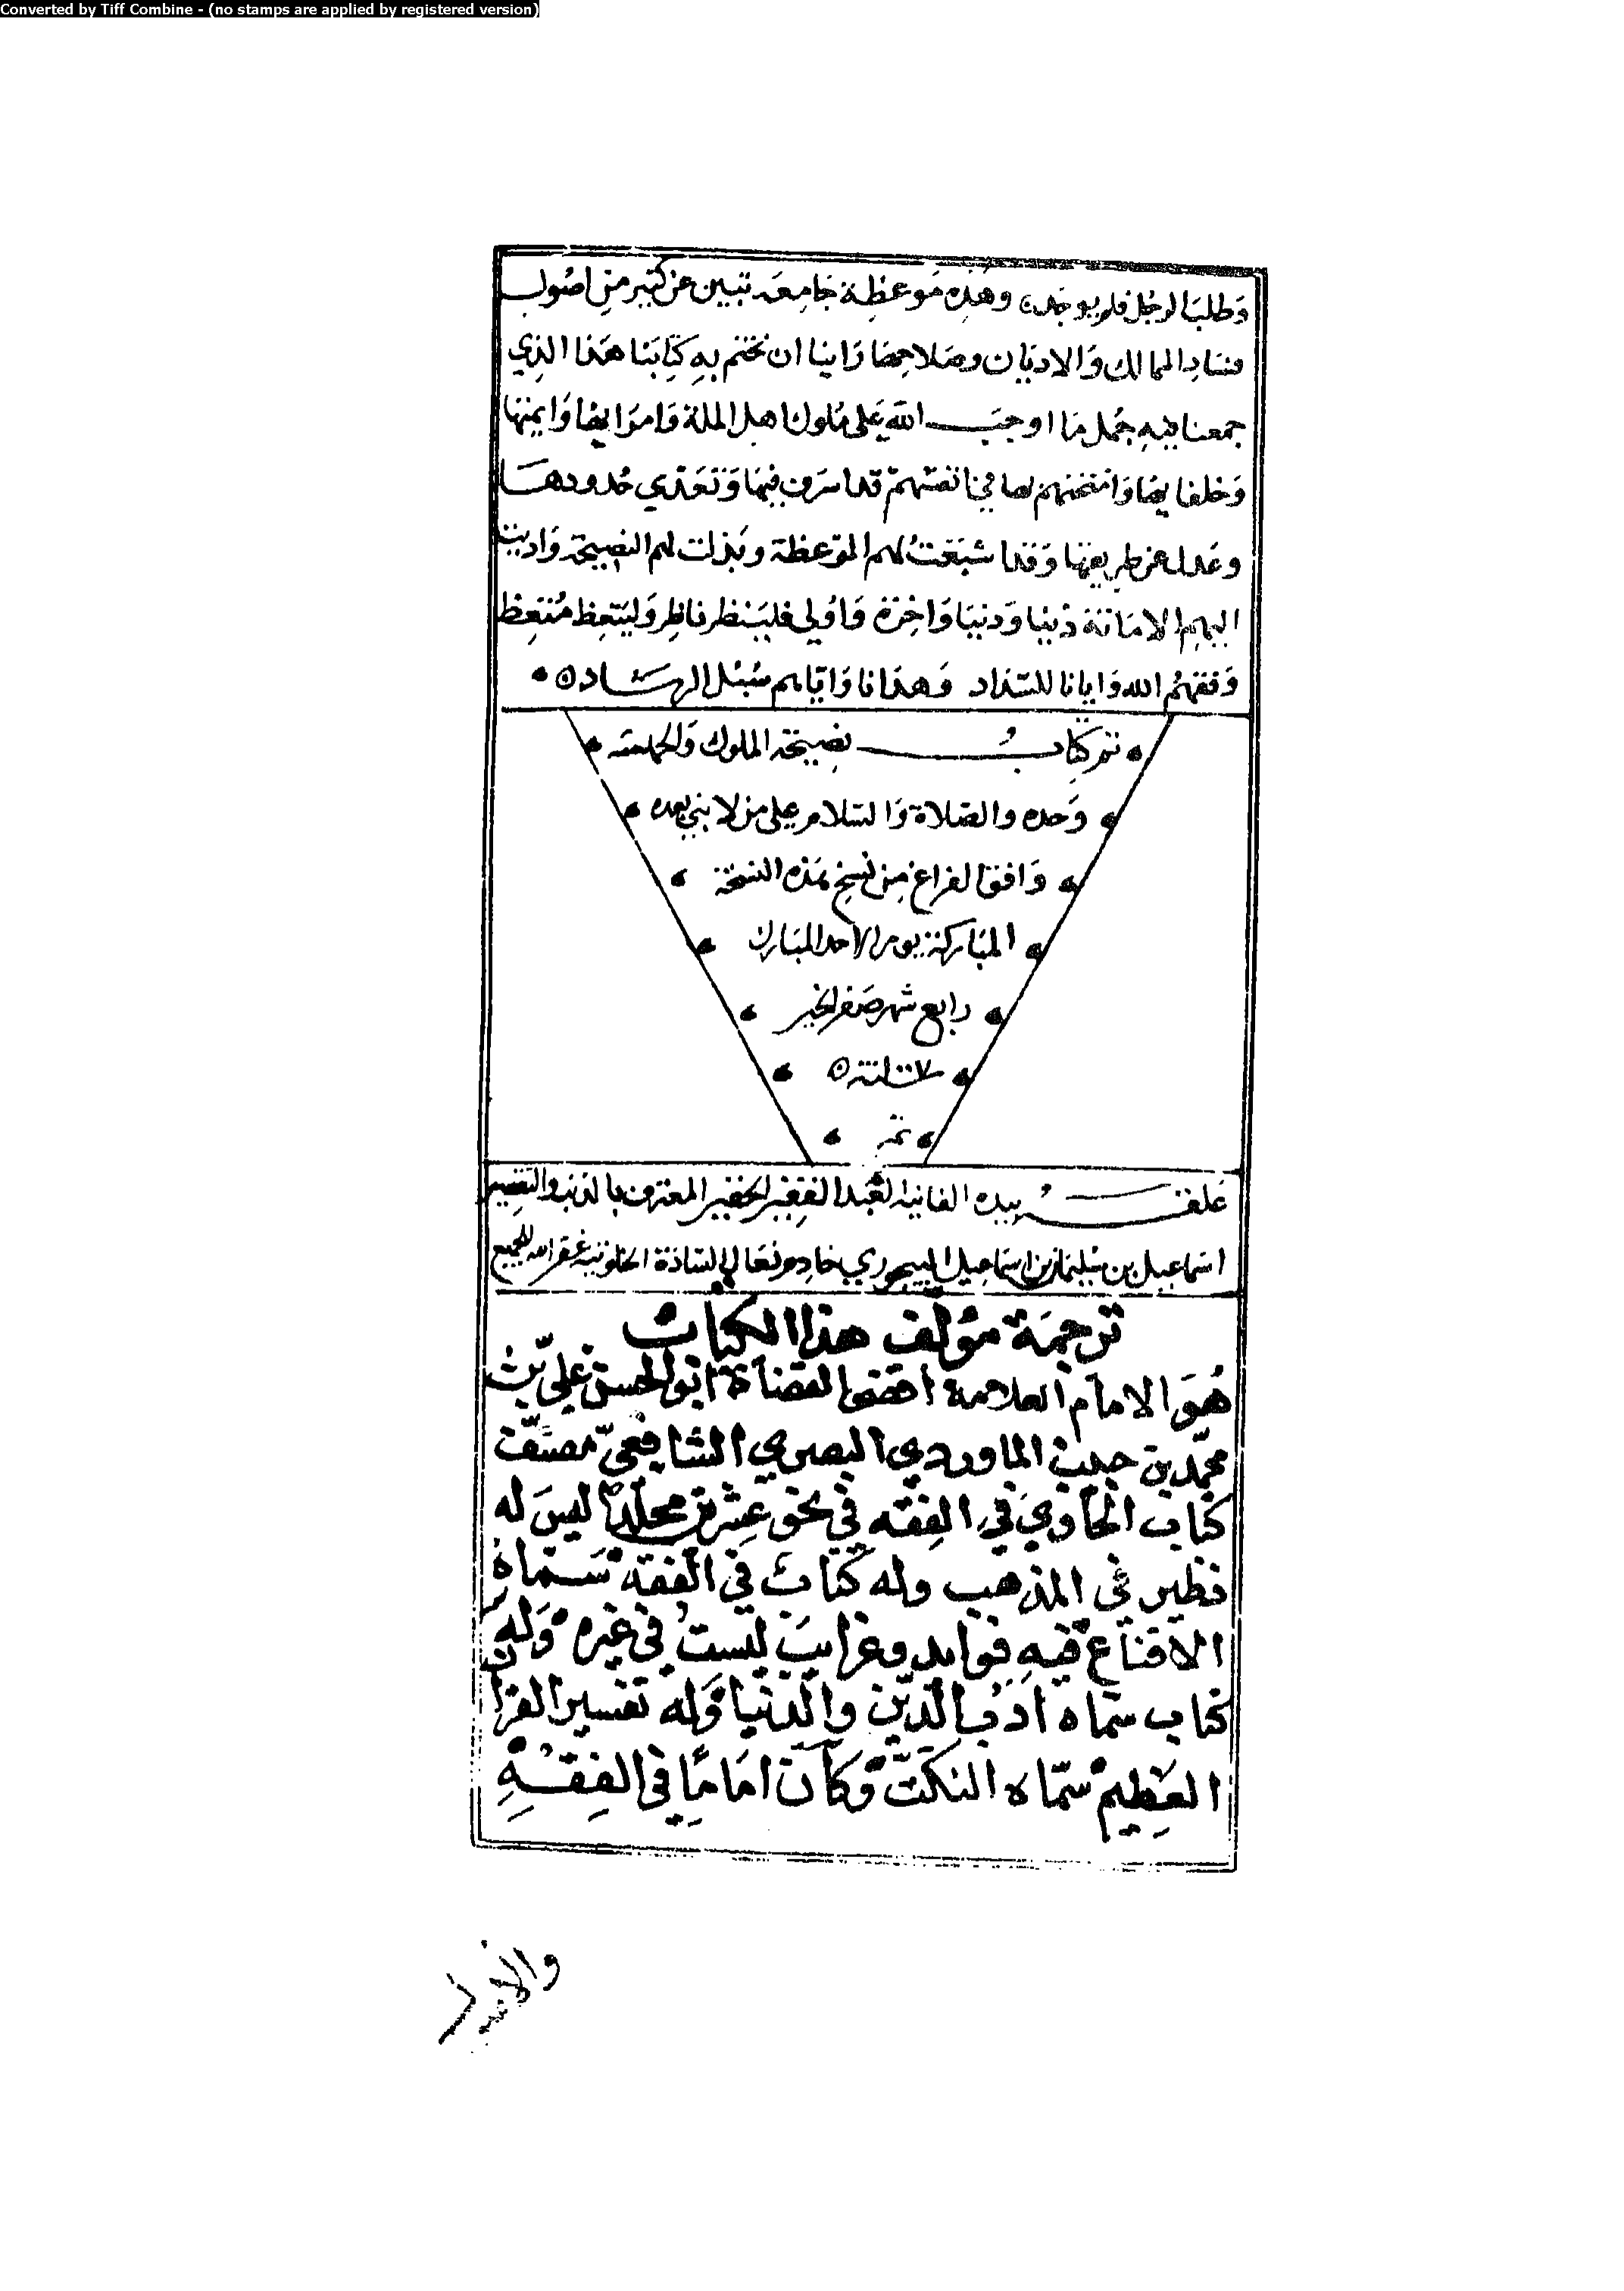 Converted by Tiff Combine - (no stamps are applied by registered version)
وطلب الرجل فلم يوجد ٥ وهذه موعظة جامعة تبين عن كثير من اصول
فساد الممالك والاديان وصلاحها راينا ان نختم به كتابنا هذا الذي
جمعنا فيه جمل ما اوجب الله على ملوك اهل الملة وامرايها وايمتها
وخلفايها وامتحنهم بها في انفسهم قد اسرف فيها وتعدي حدودها
وعدل عن طريقها وقد اشبعت لهم الموعظة وبذلت لهم النصيحة واديت
اليهم الامانة دينا ودنيا واخرة واولي فلينظر ناظر وليتعظ متعظ
وفقهم الله وايانا للسداد وهدانا واياهم سبل الرشاد ٥
تم كتاب نصيحة الملوك والحمد لله
وحده والصلاة والسلام على من لا نبي بعده
وافق الفراغ من نسخ هذه النسخة
المباركة يوم الاحد المبارك
رابع شهر صفر الخير
سنة ١٠٠٧ ٥
تم
علقه بيده الفانية العبد الفقير الحقير المعترف بالذنب والتقصير
اسماعيل بن سليمان بن اسماعيل البيجوري خادم نعال السادة الخلوتية غفر الله للجميع
ترجمة مؤلف هذا الكتاب
هو الامام العلامة اقضى القضاة ابو الحسن علي بن
محمد بن حبيب الماوردي البصري الشافعي مصنف
كتاب الحاوي في الفقه في نحو عشرين مجلدا ليس له
نظير في المذهب وله كتاب في الفقه سماه
الاقناع فيه فوايد وغرايب ليست في غيره وله
كتاب سماه ادب الدين والدنيا وله تفسير القران
العظيم سماه النكت وكان اماما في الفقه